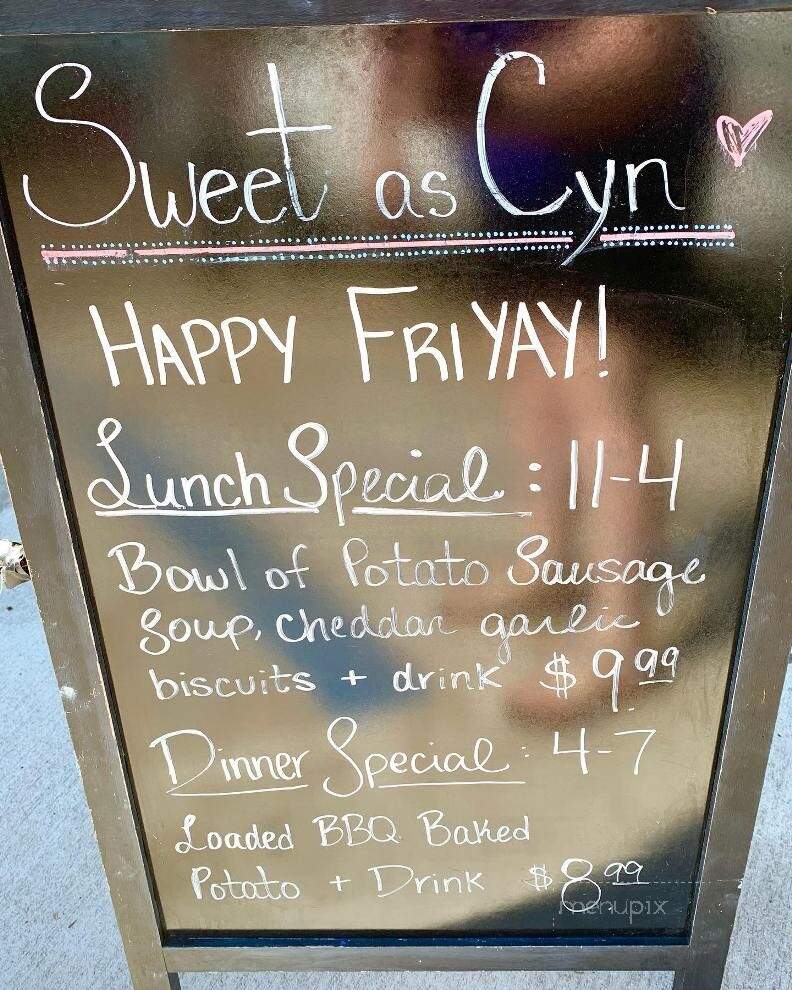 Sweet as Cyn
HAPPY FRIYAY!
Lunch Special : 11-4
Bowl of Potato Sausage
Soup, cheddar garlic
biscuits + drink $9.99
Dinner Special : 4-7
Loaded BBQ Baked
Potato + Drink $8.99
menupix